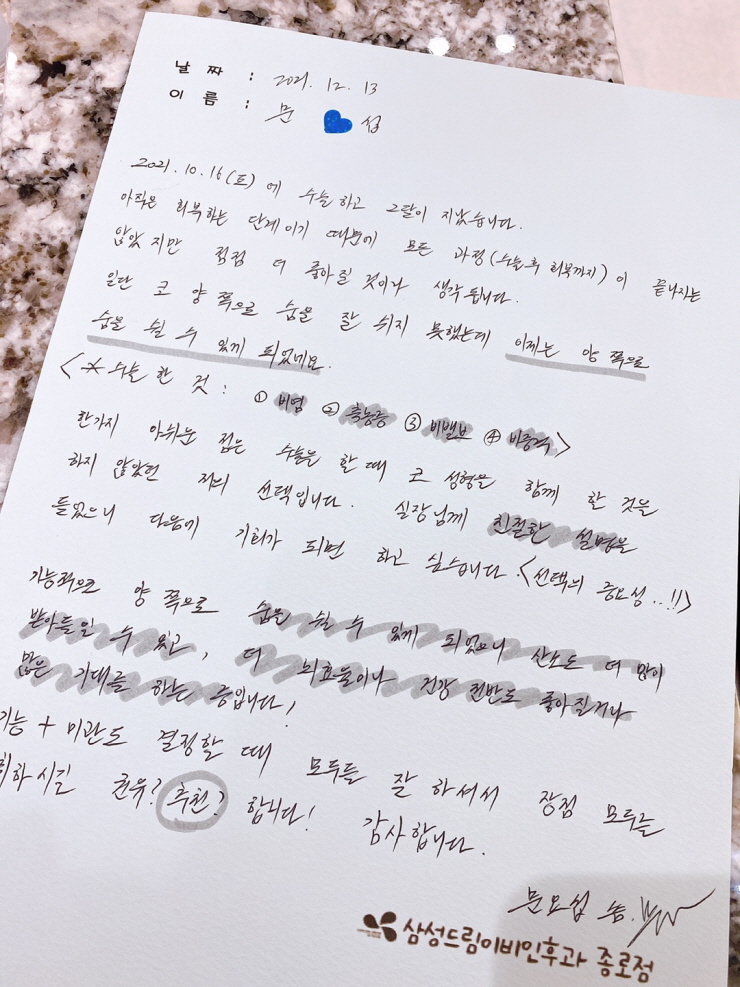 날 짜 : 2021. 12. 13
이 름 : 문 섭
2021. 10. 16(토)에 수술하고 2달이 지났습니다.
아직은 회복하는 단계이기 때문에 모든 과정(수술 후 회복까지)이 끝나지는
않았지만 점점 더 좋아질 것이라 생각됩니다.
일단 코 양 쪽으로 숨을 잘 쉬지 못했는데 이제는 양 쪽으로
숨을 쉴 수 있게 되었네요.
<※수술 한 것 : ① 비염 ② 축농증 ③ 비밸브 ④ 비중격>
한가지 아쉬운 점은 수술을 할 때 코 성형을 함께 할 것을
하지 않았던 저의 선택입니다. 실장님께 친절한 설명을
들었으니 다음에 기회가 되면 하고 싶습니다.<선택의 중요성..!!>
기능적으로 양 쪽으로 숨을 쉴 수 있게 되었으니 산소도 더 많이
받아들일 수 있고, 더 뇌효율이나 건강 전반도 좋아질거라
많은 기대를 하는 중입니다!
기능 + 미관도 결정할 때 모두들 잘 하셔서 장점 모두를
취하시길 권유? 추천? 합니다! 감사합니다.
문요섭 씀.
삼성드림이비인후과 종로점